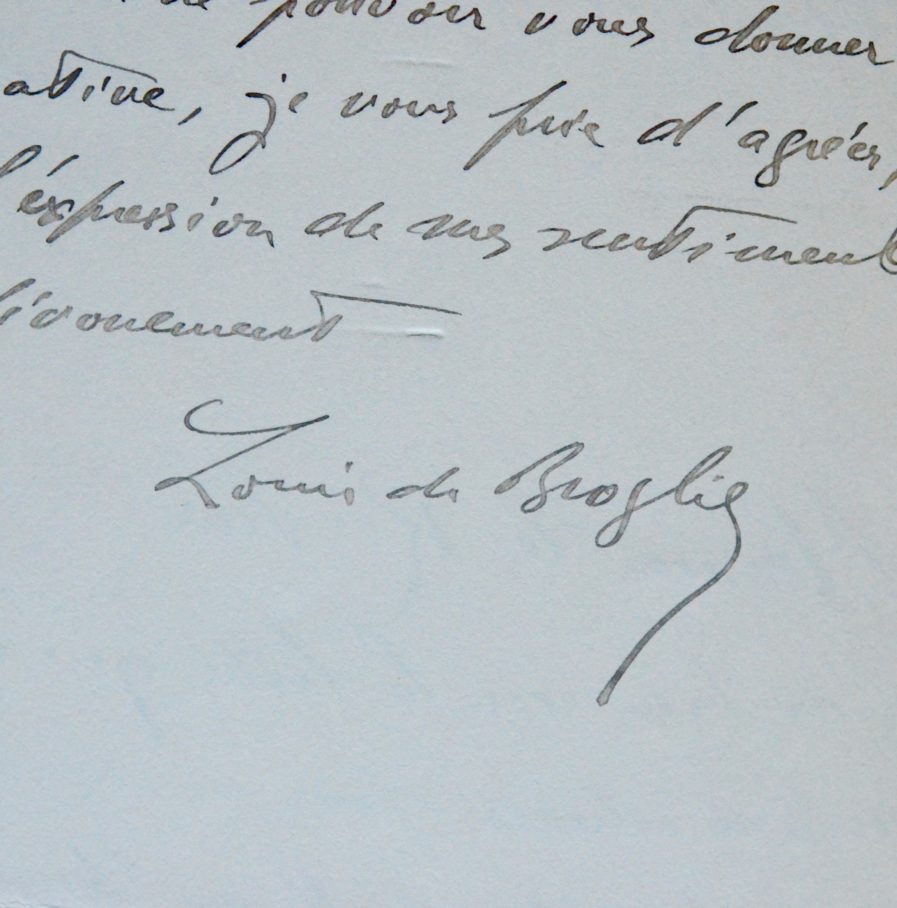 pouvoir vous donner
ative, je vous prie d'agréer,
l'éxpression de mes sentiment
évouement
Louis de Broglie